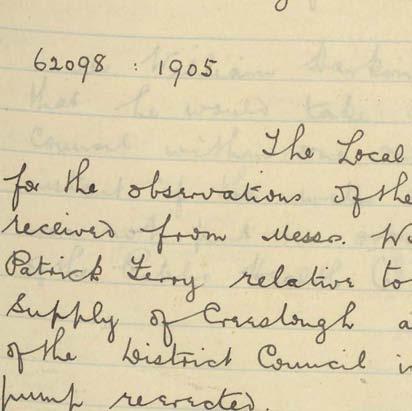 62098 : 1905
The Local
for the observations of the
received from Messrs. W
Patrick Ferry relative to
Supply of Creeslough a
of the District Council i
pump reerected.